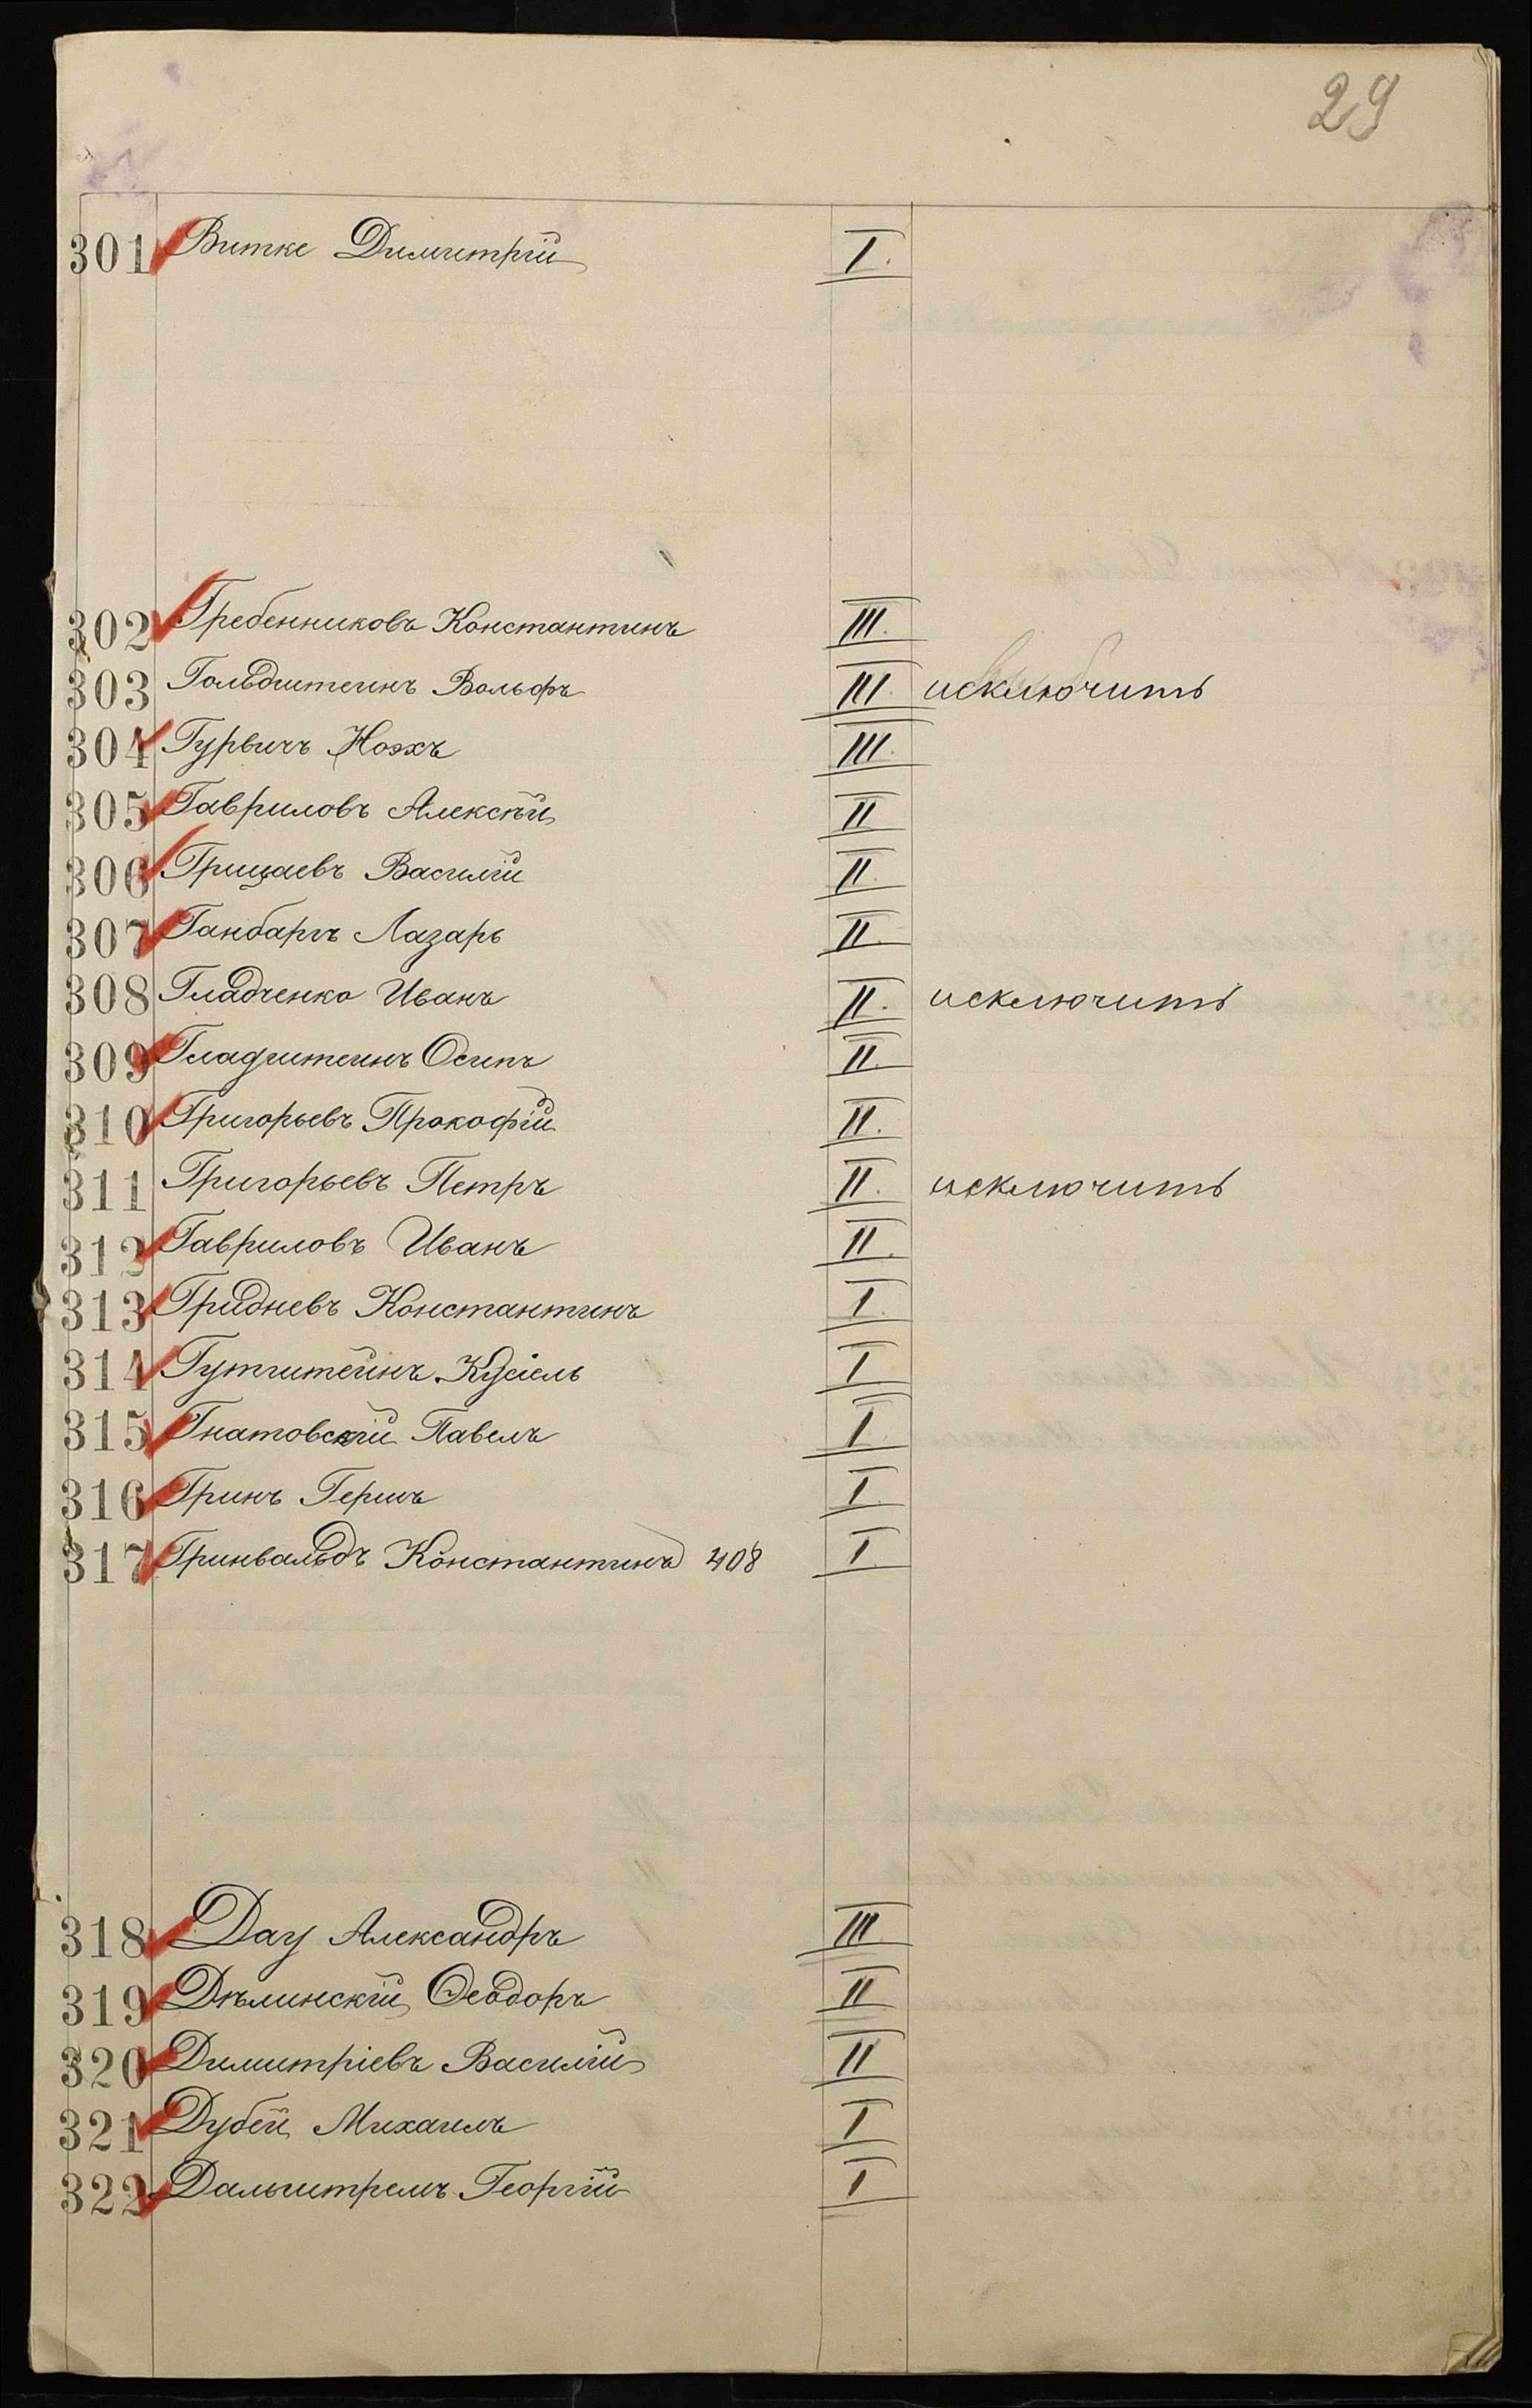 29
301 Витке Димитрій I.
302 Гребенниковъ Константинъ III.
303 Гольдштейнъ Вольфъ III. исключить
304 Гурвичъ Ноэхъ III.
305 Гавриловъ Алексѣй II
306 Грицаевъ Василій II.
307 Ганбаргъ Лазарь II.
308 Гладченко Иванъ II. исключить
309 Гладштейнъ Осипъ II.
310 Григорьевъ Прокофій II.
311 Григорьевъ Петръ II. исключить
312 Гавриловъ Иванъ II.
313 Гридневъ Константинъ I.
314 Гутштейнъ Кусіель I
315 Гнатовскій Павелъ I.
316 Гринъ Гершъ I.
317 Гринвальдъ Константинъ 408 I.
318 Дау Александръ III.
319 Дѣлинскій Ѳеодоръ II
320 Димитріевъ Василій II
321 Дубей Михаилъ I
322 Дальштремъ Георгій I